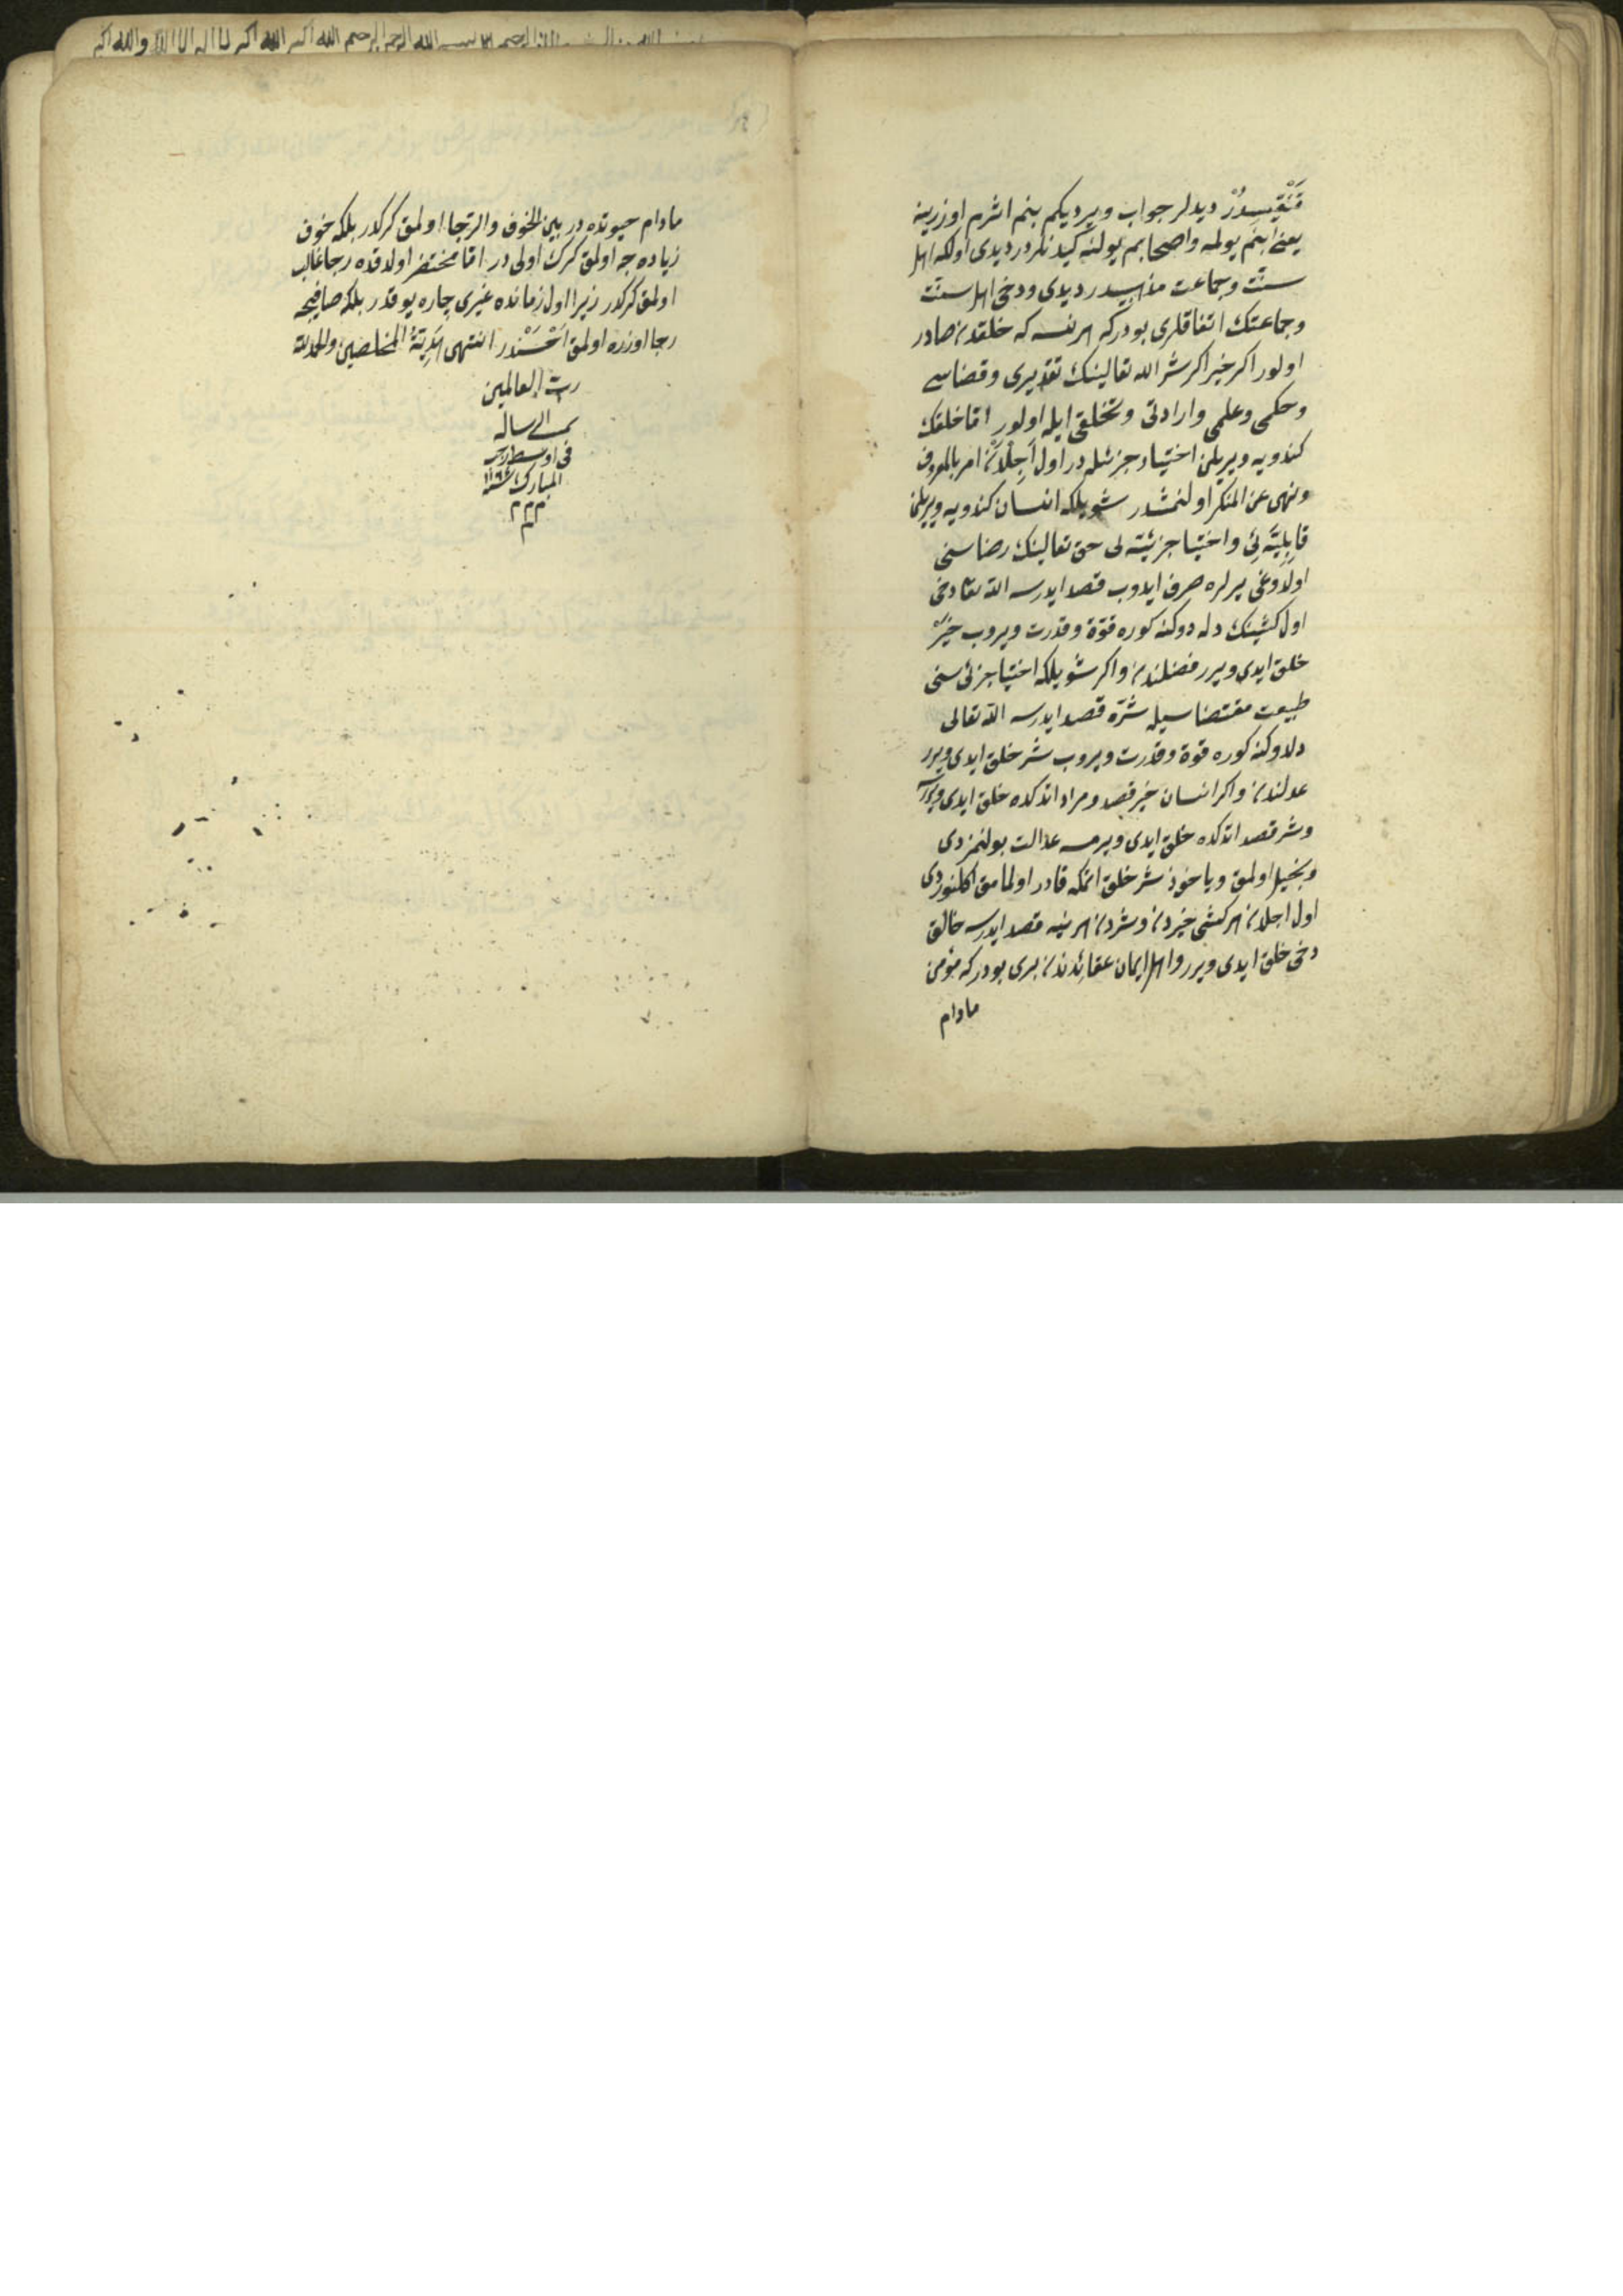 قَنْغِيسِدُرْ ديدلر جواب ويرديكم بنم اثرم اوزرينه
يعنى بنم يولمه واصحابم يولنه كيدنلردر ديدى اولكه اهل
سنت وجماعت مذهبيدر ديدى ودخى اهل سنت
وجماعتك اتفاقلرى بودركه هر نسه كه خلقدن صادر
اولور اكر خير اكر شر الله تعالينك تقديرى وقضاسى
وحكمى وعلمى وارادتى وتخليقى ايله اولور امّا خلقك
كندويه ويريلن اختيار جزئيله در اول اَجِلْدَنْ امر بالمعروف
ونهى عن المنكر اولنمشدر شويلكه انسان كندويه ويريلن
قابِلِيَّتِى واختيار جزئيه لى حق تعالينك رضاسنى
اولدوغى يرلره صرف ايدوب قصد ايدرسه الله تعا دخى
اول كشينك دله دوكنه كوره قوّة وقدرت ويروب خيرّ
خلق ايدى ويرر فضلندن واكر شويلكه اختيا جزئى سنى
طبيعت مقتضاسيله شرّه قصد ايدرسه الله تعالى
دلدوكنه كوره قوة وقدرت ويروب شر خلق ايدى ويرر
عدلندن واكر انسان خير قصد ومراد اتدكده خلق ايدى ويرر
وشر قصد اتدكده خلق ايدى ويرمسه عدالت بولنمزدى
وبخيل اولمق وياخوذ شر خلق اتمكه قادر اولمامق اكلنوردى
اول اجلدن هر كشى خيردن وشردن هر نيه قصد ايدرسه خالق
دخى خلق ايدى ويرر واهل ايمان عقائدندن برى بودركه مؤمن
مادام
مادام حيوتده در بين الخوف والرّجا اولمق كركدر بلكه خوف
زياده جه اولمق كرك اولى در امّا محتضر اولدقده رجا غالب
اولمق كركدر زيرا اول زمانده غيرى چاره يوقدر بلكه صافيجه
رجا اوزره اولمق اَحْسَنْدر انتهى هَدِيَّةُ المخلصين والحمد لله
ربّ العالمين
تمت الرساله
فى اوسط رجب
المبارك سنة ١١٦٤
م م م
م